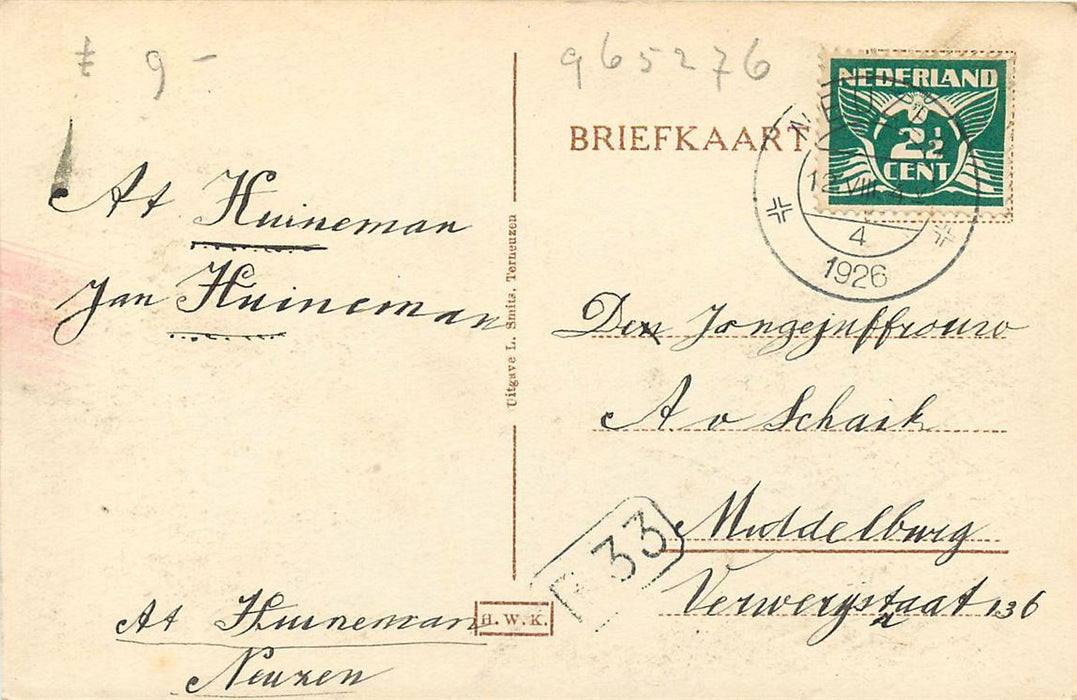 9 -
965276
BRIEFKAART
NEDERLAND
2 1/2
CENT
12 VIII 4
4
1926
At Huineman
Jan Huineman
Uitgave L. Smits, Terneuzen
Den Jongejuffrouw
A. v Schaik
Middelburg
33
Verwerystraat 136
At Huineman
Neuzen
H. W. K.